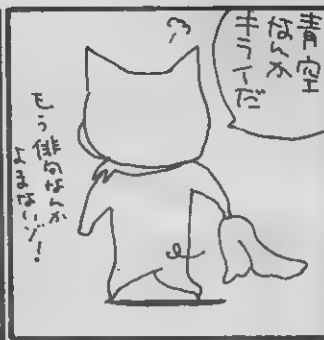 青空
なんか
キライだ
もう俳句なんか
よまないゾ!